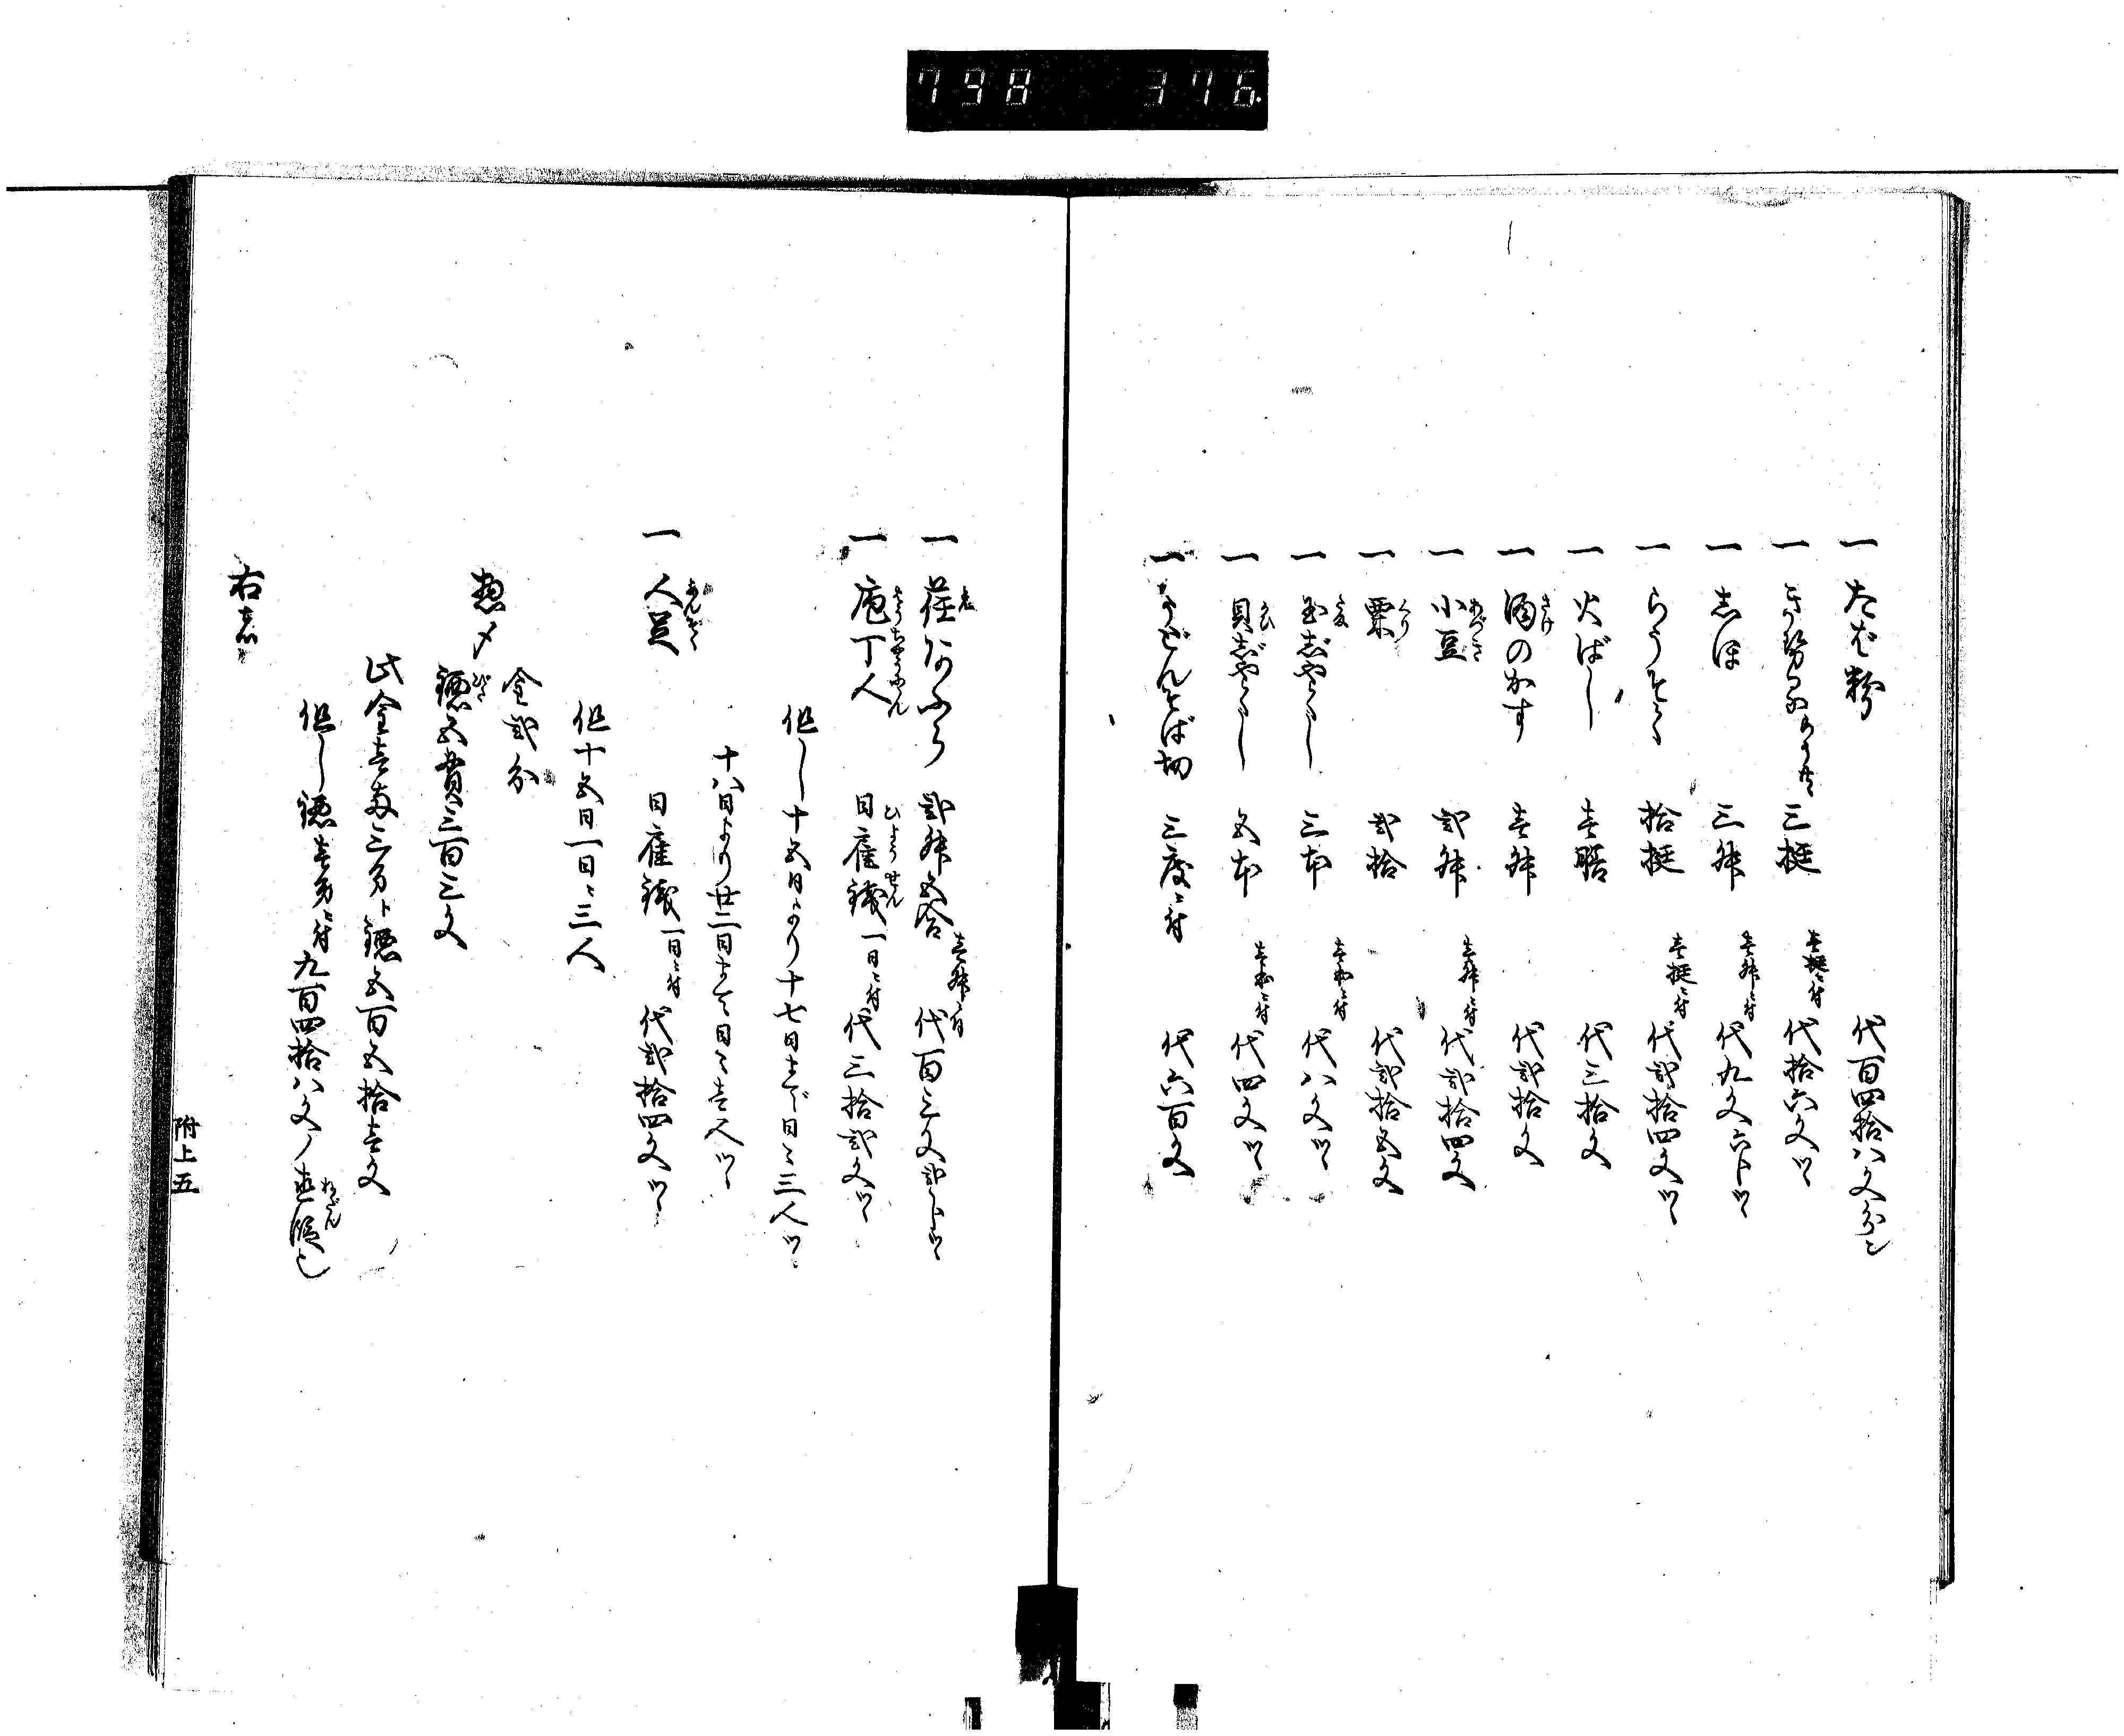 798 376
一 たばこ 代百四拾八文分
一 三挺 壱挺ニ付 代拾六文ツヽ
一 志ほ 三舛 壱舛ニ付 代九文六トツヽ
一 らうそく 拾挺 壱挺ニ付 代弐拾四文ツヽ
一 火ばし 壱膳 代三拾文
一 酒のかす 壱舛 代弐拾文
一 小豆 弐舛 壱舛ニ付 代弐拾四文
一 栗 弐拾 代弐拾五文
一 玉志やくし 三本 壱本ニ付 代八文ツヽ
一 貝志やくし 五本 壱本ニ付 代四文ツヽ
一 うどんそば切 三度ニ付 代六百文
一 荏のあふら 弐舛五合 壱舛ニ付 代百三文弐トツヽ
一 庖丁人 日雇銭一日ニ付 代三拾弐文ツヽ
但し十五日より十七日まで日々三人ツヽ
十八日より廿二日まて日々壱人ツヽ
一 人足 日雇銭一日ニ付 代弐拾四文ツヽ
但十五日一日ニ三人
金弐分
惣〆
鐚五貫三百三文
此金壱両三分ト鐚五百五拾壱文
但し鐚壱分ニ付九百四拾八文ノ直段也
右志
附上五